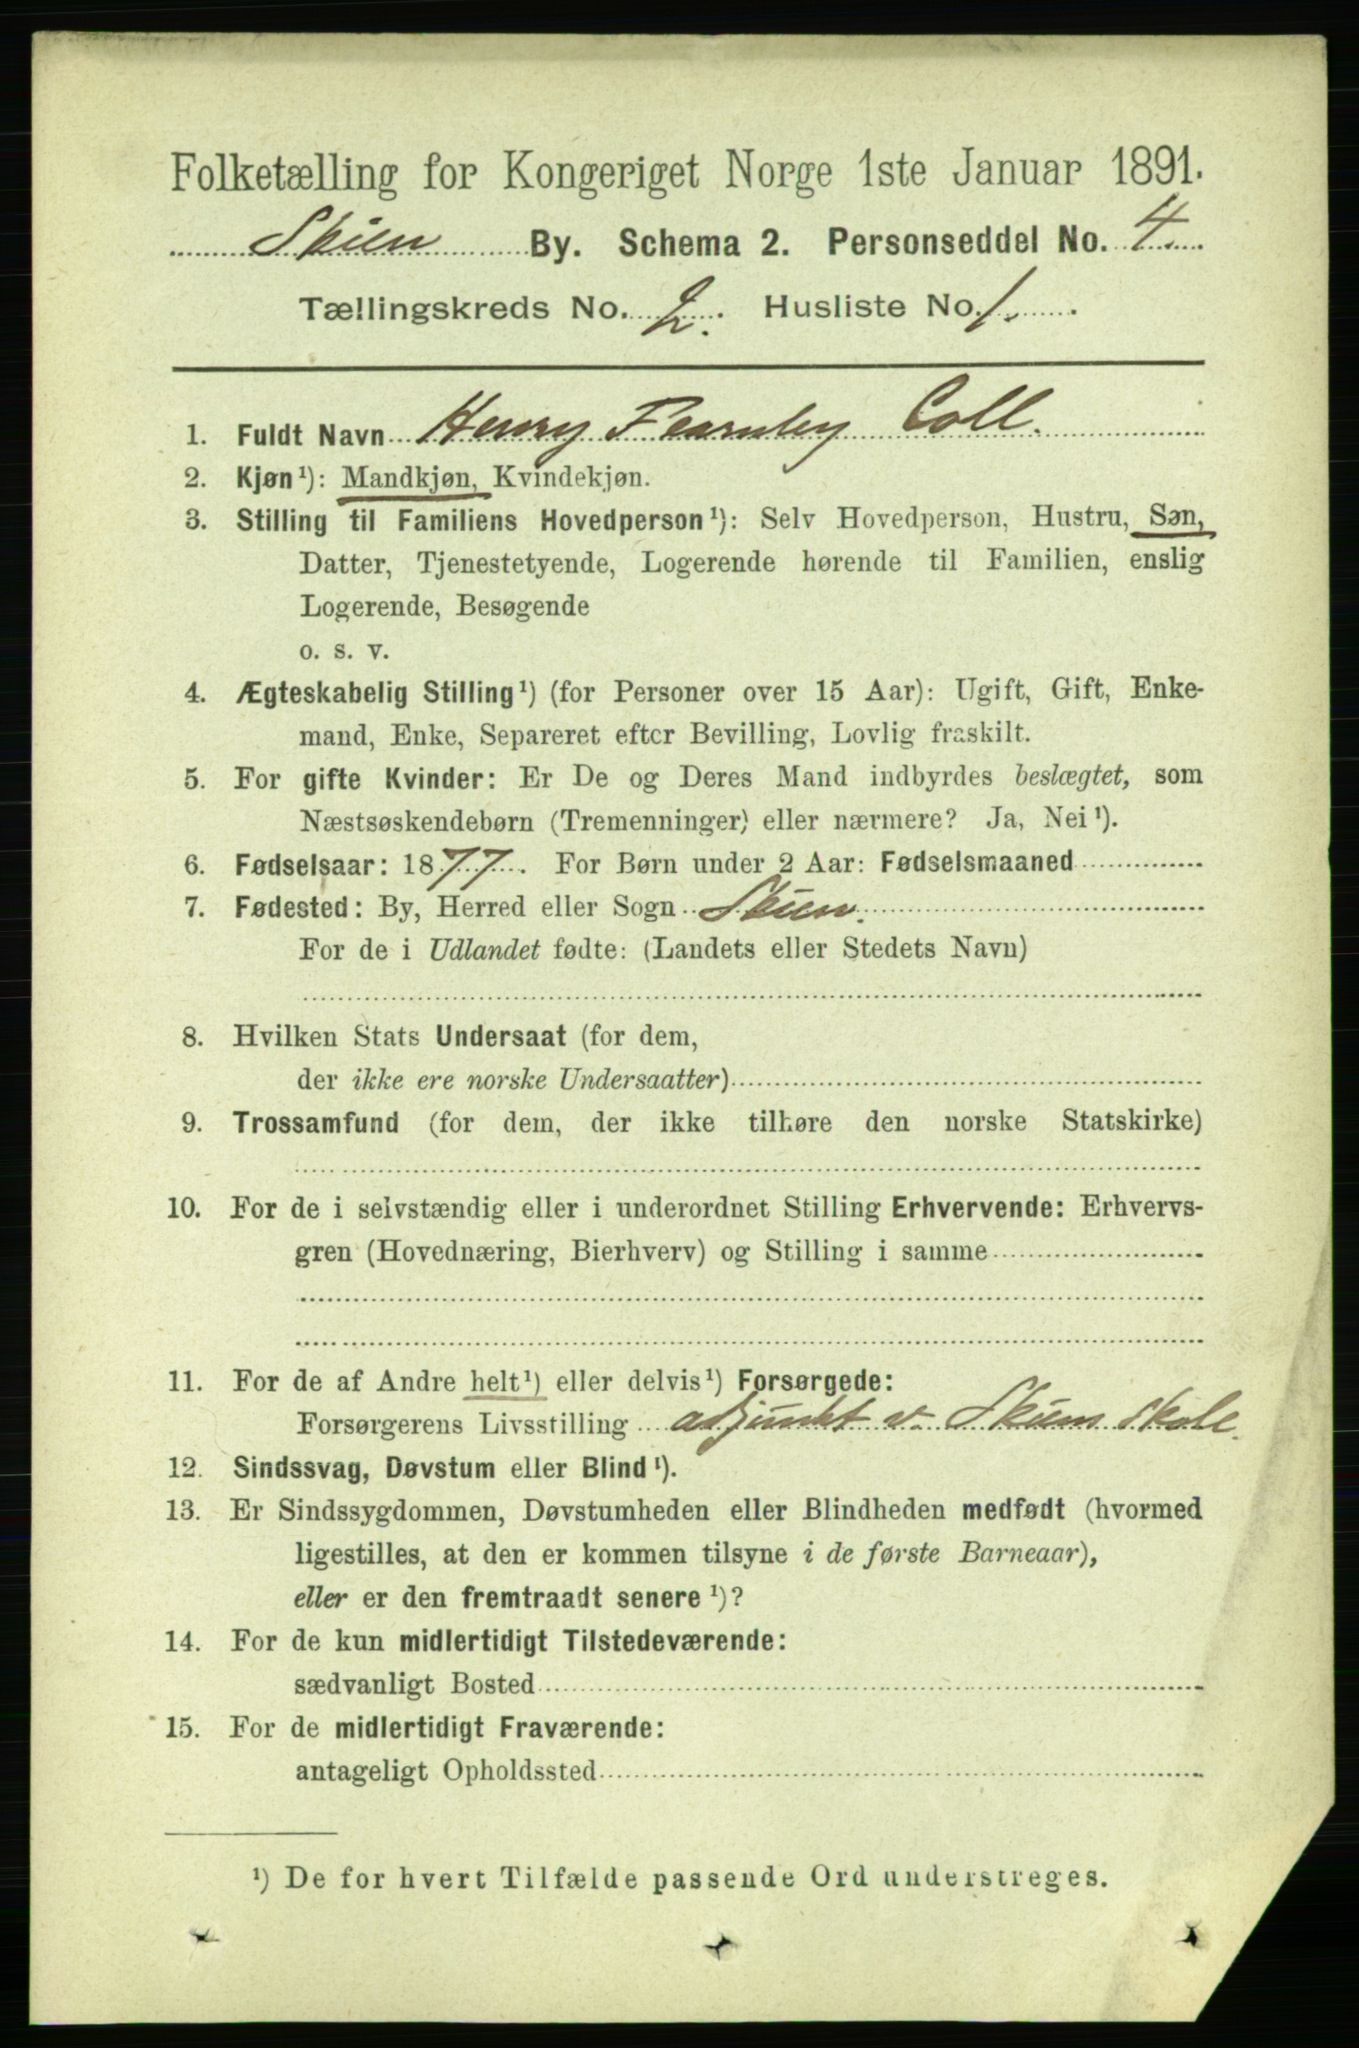 Folketælling for Kongeriget Norge 1ste Januar 1891.
Skien By. Schema 2. Personseddel No. 4.
Tællingskreds No. 2. Husliste No. 1.
1. Fuldt Navn Henry Fearnley Coll.
2. Kjøn¹): Mandkjøn, Kvindekjøn.
3. Stilling til Familiens Hovedperson¹): Selv Hovedperson, Hustru, Søn,
Datter, Tjenestetyende, Logerende hørende til Familien, enslig
Logerende, Besøgende
o. s. v.
4. Ægteskabelig Stilling¹) (for Personer over 15 Aar): Ugift, Gift, Enke-
mand, Enke, Separeret efter Bevilling, Lovlig fraskilt.
5. For gifte Kvinder: Er De og Deres Mand indbyrdes beslægtet, som
Næstsøskendebørn (Tremenninger) eller nærmere? Ja, Nei¹).
6. Fødselsaar: 1877. For Børn under 2 Aar: Fødselsmaaned
7. Fødested: By, Herred eller Sogn Skien.
For de i Udlandet fødte: (Landets eller Stedets Navn)
8. Hvilken Stats Undersaat (for dem,
der ikke ere norske Undersaatter)
9. Trossamfund (for dem, der ikke tilhøre den norske Statskirke)
10. For de i selvstændig eller i underordnet Stilling Erhvervende: Erhvervs-
gren (Hovednæring, Bierhverv) og Stilling i samme
11. For de af Andre helt¹) eller delvis¹) Forsørgede:
Forsørgerens Livsstilling adjunkt v. Skiens skole.
12. Sindssvag, Døvstum eller Blind¹).
13. Er Sindssygdommen, Døvstumheden eller Blindheden medfødt (hvormed
ligestilles, at den er kommen tilsyne i de første Barneaar),
eller er den fremtraadt senere¹)?
14. For de kun midlertidigt Tilstedeværende:
sædvanligt Bosted
15. For de midlertidigt Fraværende:
antageligt Opholdssted
¹) De for hvert Tilfælde passende Ord understreges.